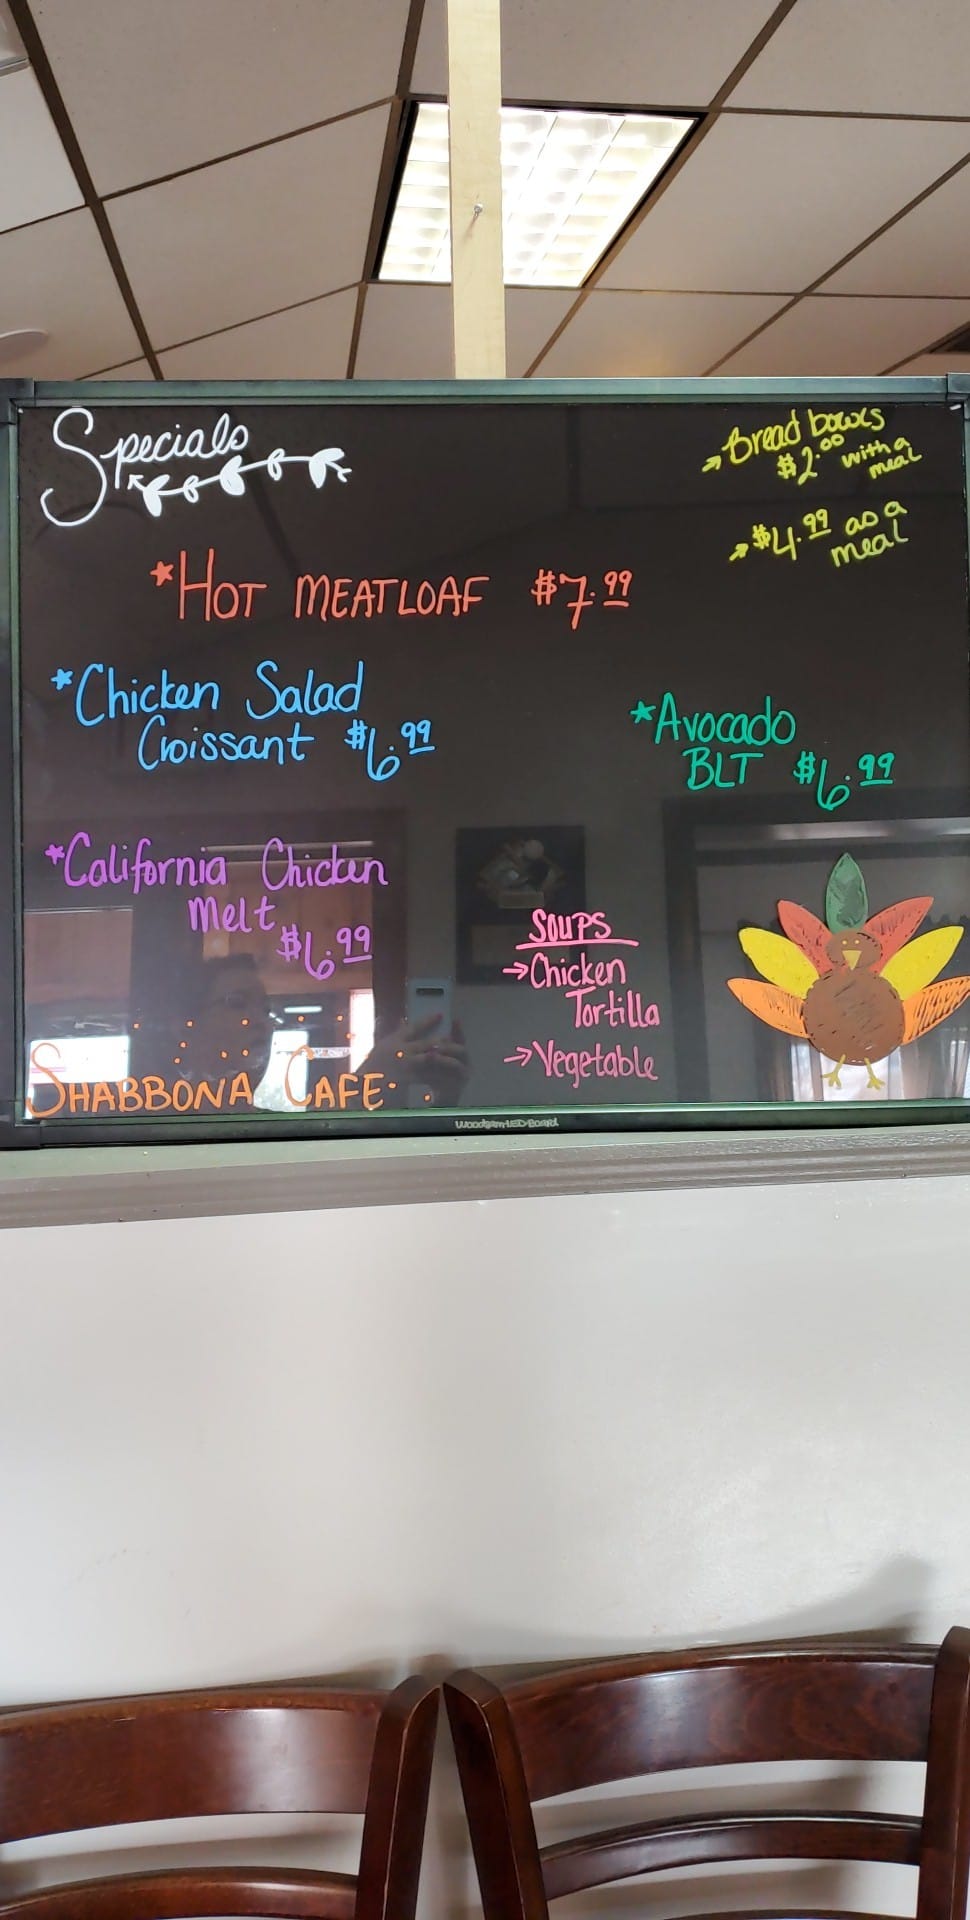 Specials
Bread bowls
$2.00 with a
meal
$4.99 as a
meal
*HOT MEATLOAF $7.99
*Chicken Salad
Croissant $6.99
*Avocado
BLT $6.99
*California Chicken
Melt $6.99
SOUPS
→Chicken
Tortilla
→Vegetable
SHABBONA CAFE